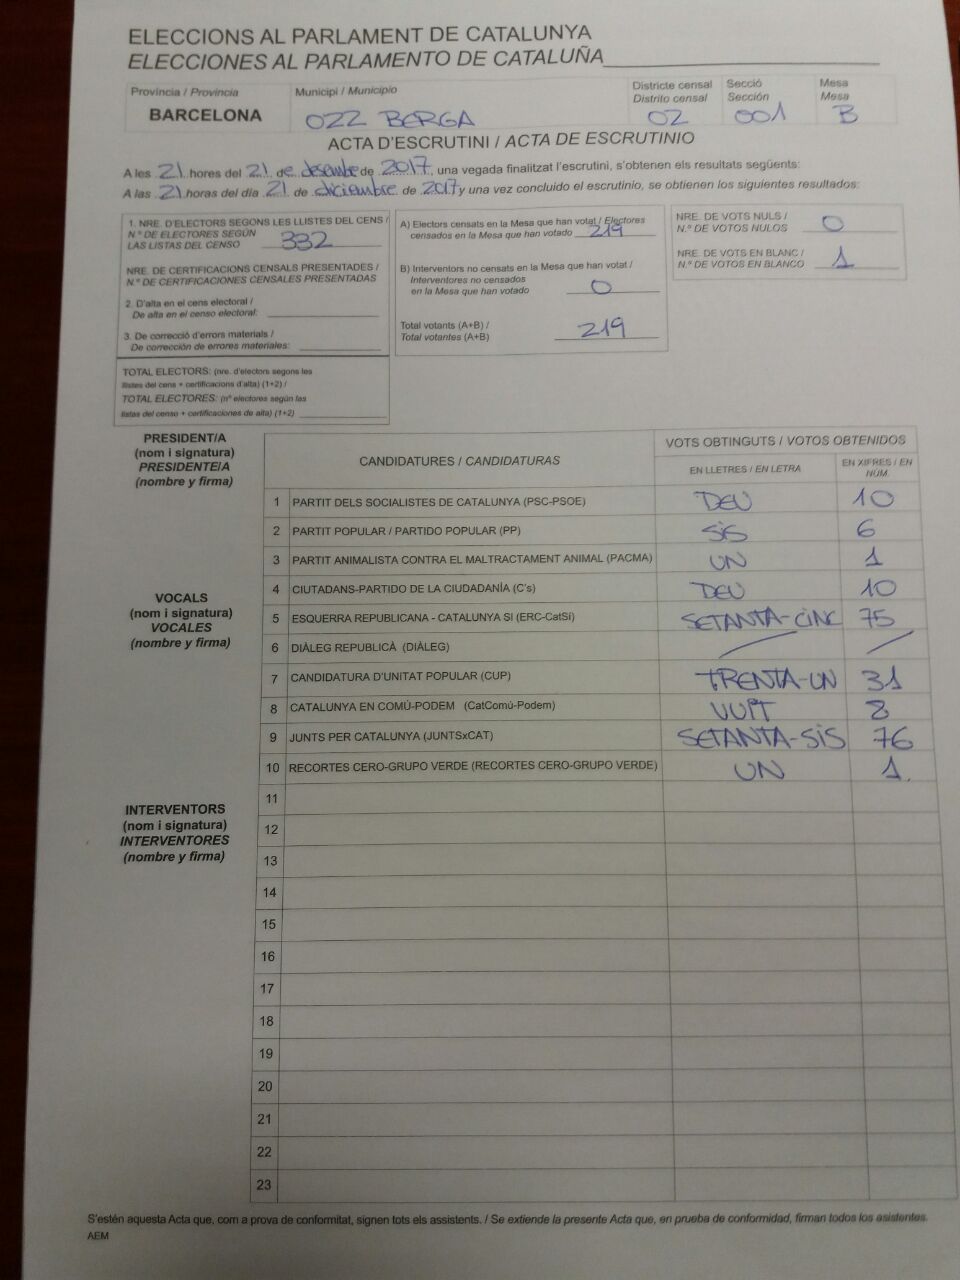 ELECCIONS AL PARLAMENT DE CATALUNYA
ELECCIONES AL PARLAMENTO DE CATALUÑA
Província / Provincia
Municipi / Municipio
Districte censal
Distrito censal
Secció
Sección
Mesa
Mesa
BARCELONA
022 BERGA
02
001
B
ACTA D'ESCRUTINI / ACTA DE ESCRUTINIO
A les 21 hores del 21 de desembre de 2017, una vegada finalitzat l'escrutini, s'obtenen els resultats següents:
A las 21 horas del día 21 de diciembre de 2017 y una vez concluido el escrutinio, se obtienen los siguientes resultados:
1. NRE. D'ELECTORS SEGONS LES LLISTES DEL CENS /
N.º DE ELECTORES SEGÚN
LAS LISTAS DEL CENSO 332
NRE. DE CERTIFICACIONS CENSALS PRESENTADES /
N.º DE CERTIFICACIONES CENSALES PRESENTADAS
2. D'alta en el cens electoral /
De alta en el censo electoral:
3. De correcció d'errors materials /
De corrección de errores materiales:
TOTAL ELECTORS: (nre. d'electors segons les
llistes del cens + certificacions d'alta) (1+2) /
TOTAL ELECTORES: (nº electores según las
listas del censo + certificaciones de alta) (1+2)
A) Electors censats en la Mesa que han votat / Electores
censados en la Mesa que han votado 219
B) Interventors no censats en la Mesa que han votat /
Interventores no censados
en la Mesa que han votado 0
Total votants (A+B) /
Total votantes (A+B) 219
NRE. DE VOTS NULS /
N.º DE VOTOS NULOS 0
NRE. DE VOTS EN BLANC /
N.º DE VOTOS EN BLANCO 1
PRESIDENT/A
(nom i signatura)
PRESIDENTE/A
(nombre y firma)
VOCALS
(nom i signatura)
VOCALES
(nombre y firma)
INTERVENTORS
(nom i signatura)
INTERVENTORES
(nombre y firma)
CANDIDATURES / CANDIDATURAS
VOTS OBTINGUTS / VOTOS OBTENIDOS
EN LLETRES / EN LETRA
EN XIFRES / EN NÚM.
1 PARTIT DELS SOCIALISTES DE CATALUNYA (PSC-PSOE) DEU 10
2 PARTIT POPULAR / PARTIDO POPULAR (PP) SIS 6
3 PARTIT ANIMALISTA CONTRA EL MALTRACTAMENT ANIMAL (PACMA) UN 1
4 CIUTADANS-PARTIDO DE LA CIUDADANÍA (C's) DEU 10
5 ESQUERRA REPUBLICANA - CATALUNYA SI (ERC-CatSí) SETANTA-CINC 75
6 DIÀLEG REPUBLICÀ (DIÀLEG) / /
7 CANDIDATURA D'UNITAT POPULAR (CUP) TRENTA-UN 31
8 CATALUNYA EN COMÚ-PODEM (CatComú-Podem) VUIT 8
9 JUNTS PER CATALUNYA (JUNTSxCAT) SETANTA-SIS 76
10 RECORTES CERO-GRUPO VERDE (RECORTES CERO-GRUPO VERDE) UN 1.
11
12
13
14
15
16
17
18
19
20
21
22
23
S'estén aquesta Acta que, com a prova de conformitat, signen tots els assistents. / Se extiende la presente Acta que, en prueba de conformidad, firman todos los asistentes.
AEM